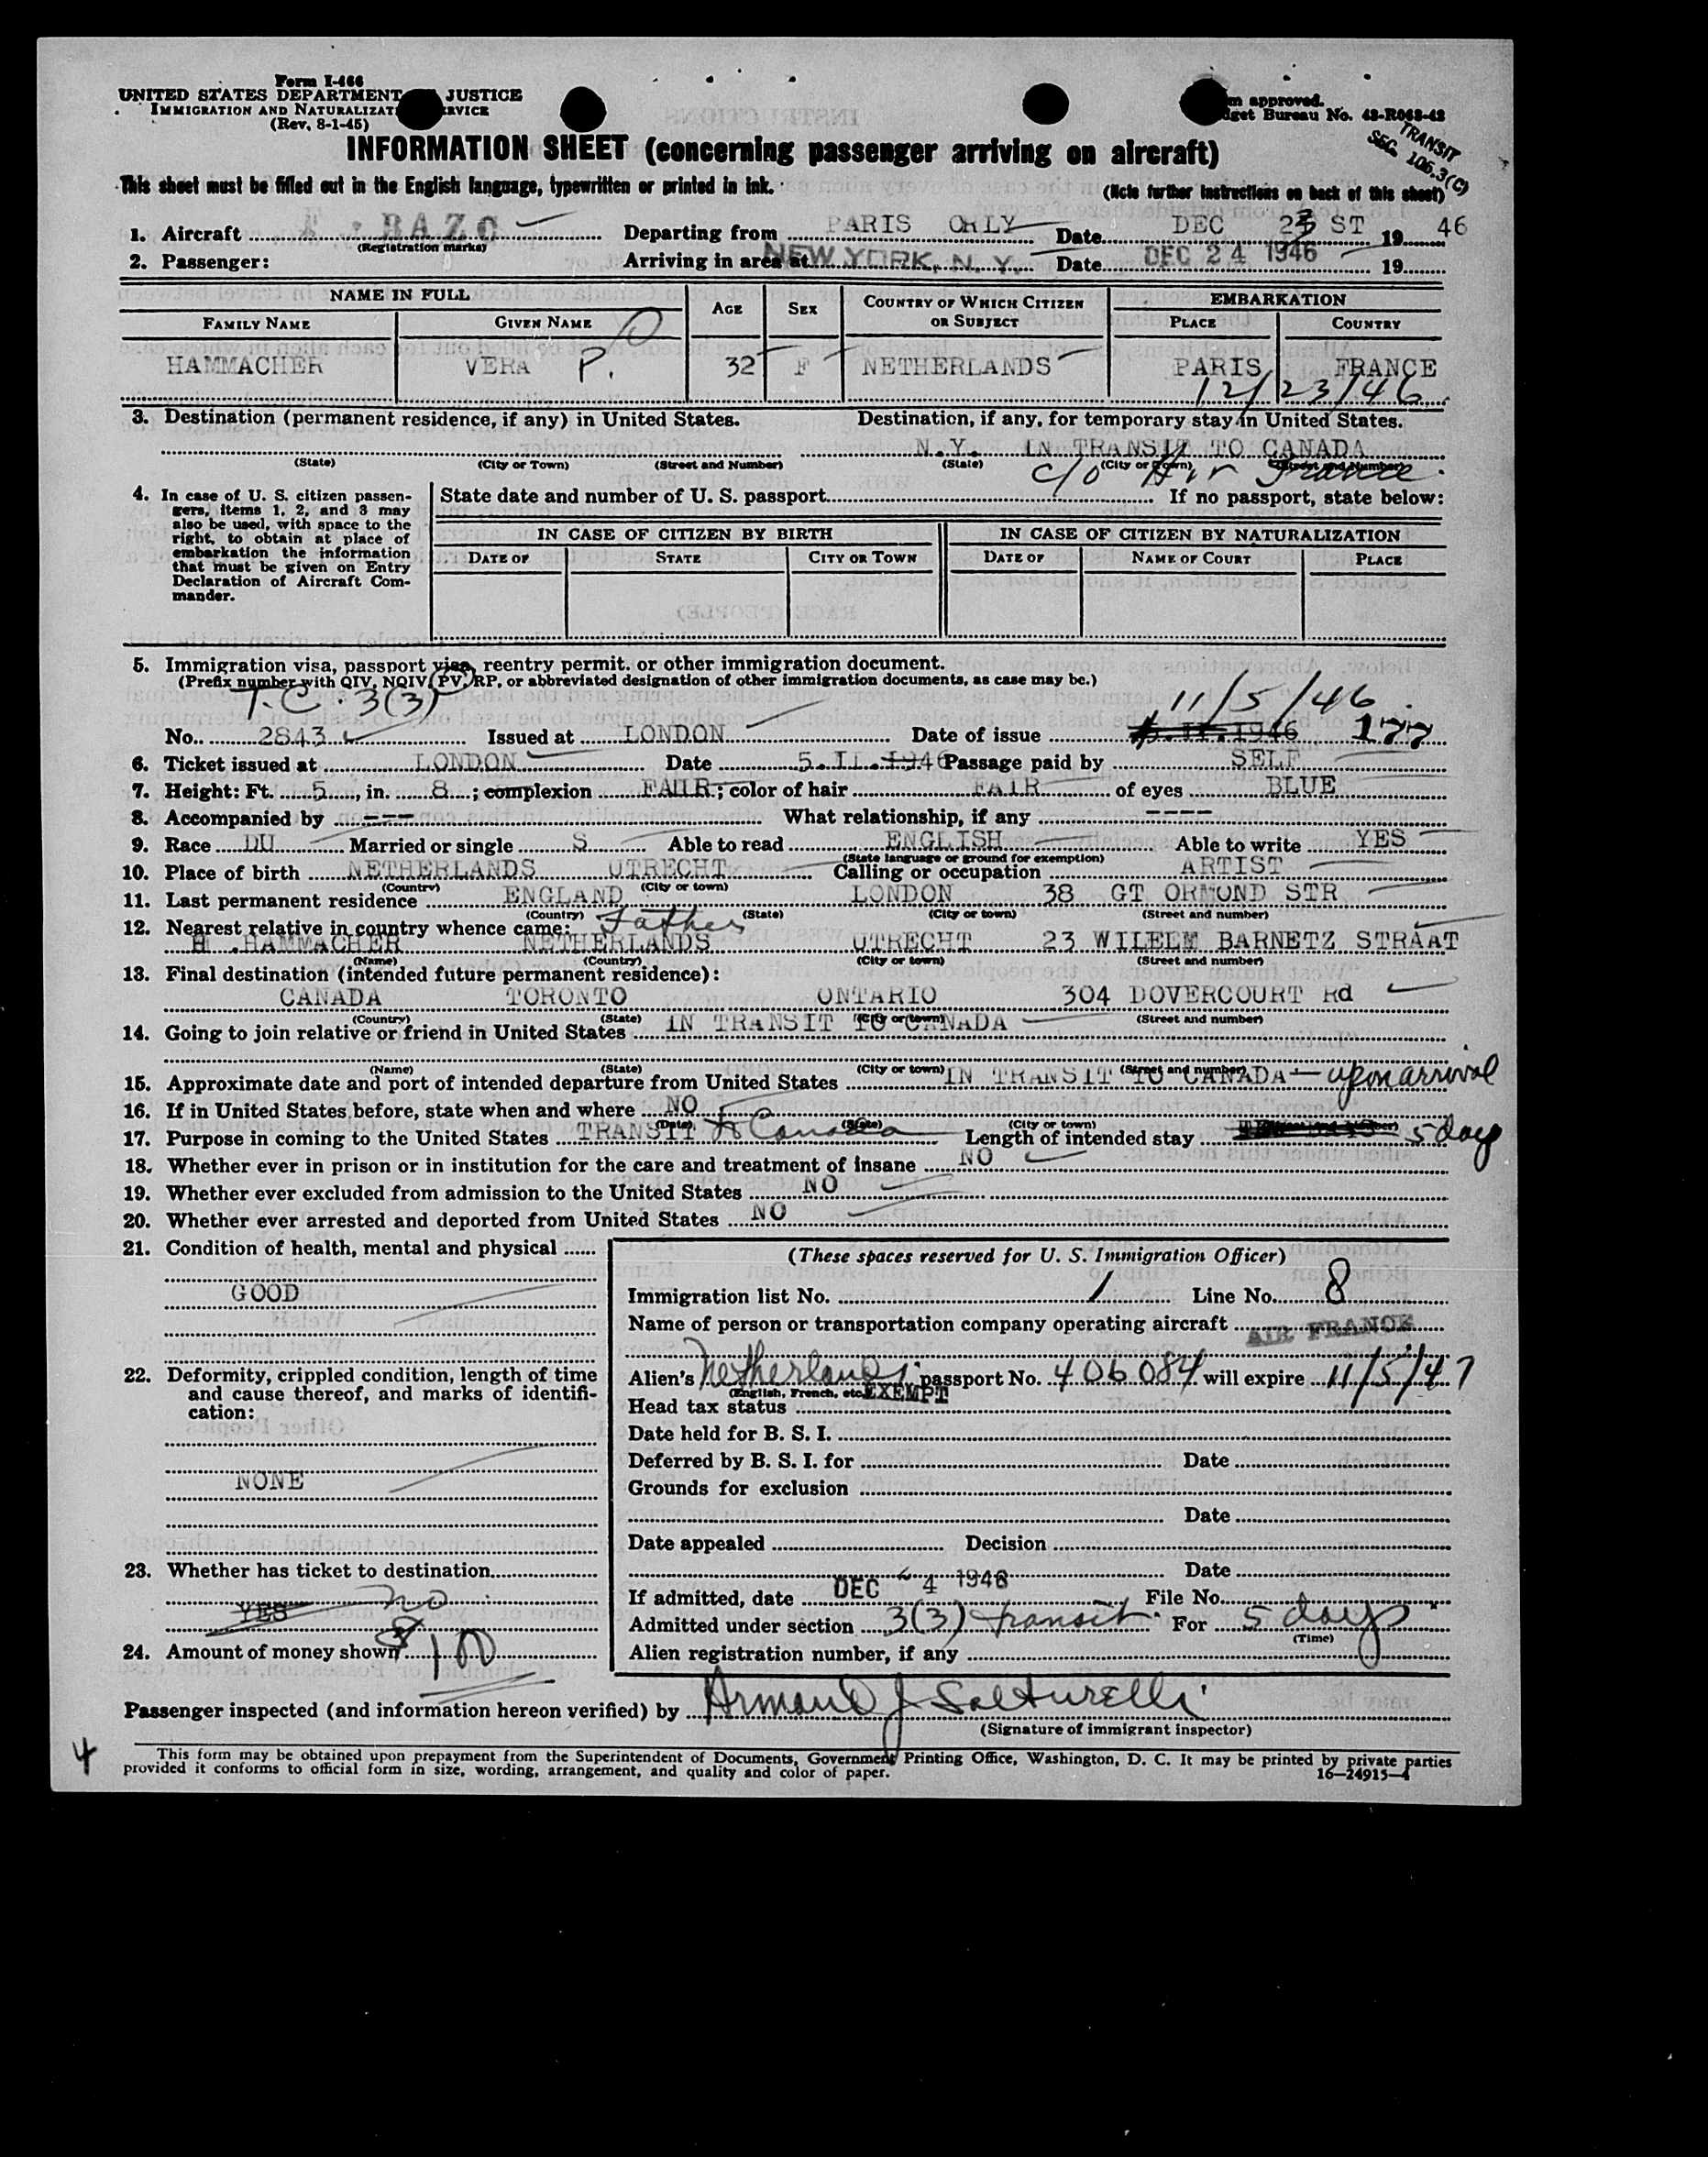 Form I-466
UNITED STATES DEPARTMENT JUSTICE
IMMIGRATION AND NATURALIZAT RVICE
(Rev. 8-1-45)
m approved.
get Bureau No. 43-R063-42
TRANSIT
SEC. 106.3(C)
INFORMATION SHEET (concerning passenger arriving on aircraft)
This sheet must be filled out in the English language, typewritten or printed in ink.
(Note further instructions on back of this sheet)
1. Aircraft F - BAZC Departing from PARIS ORLY Date DEC 23 ST 19 46
(Registration marks)
2. Passenger: Arriving in area at NEW YORK, N. Y. Date DEC 24 1946 19
NAME IN FULL AGE SEX COUNTRY OF WHICH CITIZEN OR SUBJECT EMBARKATION
FAMILY NAME GIVEN NAME PLACE COUNTRY
HAMMACHER VERA P. 32 F NETHERLANDS PARIS FRANCE
12/23/46
3. Destination (permanent residence, if any) in United States. Destination, if any, for temporary stay in United States.
N.Y. IN TRANSIT TO CANADA
(State) (City or Town) (Street and Number) (State) (City or Town) (Street and Number)
c/o Air France
4. In case of U. S. citizen passengers, items 1, 2, and 3 may also be used, with space to the right, to obtain at place of embarkation the information that must be given on Entry Declaration of Aircraft Commander.
State date and number of U. S. passport If no passport, state below:
IN CASE OF CITIZEN BY BIRTH IN CASE OF CITIZEN BY NATURALIZATION
DATE OF STATE CITY OR TOWN DATE OF NAME OF COURT PLACE
5. Immigration visa, passport visa, reentry permit, or other immigration document.
(Prefix number with QIV, NQIV, PV, RP, or abbreviated designation of other immigration documents, as case may be.)
T.C. 3(3) 11/5/46
No. 2843 Issued at LONDON Date of issue 1946 177
6. Ticket issued at LONDON Date 5.II.1946 Passage paid by SELF
7. Height: Ft. 5, in. 8; complexion FAIR; color of hair FAIR of eyes BLUE
8. Accompanied by --- What relationship, if any ----
9. Race DU Married or single S Able to read ENGLISH Able to write YES
(State language or ground for exemption)
10. Place of birth NETHERLANDS UTRECHT Calling or occupation ARTIST
(Country) (City or town)
11. Last permanent residence ENGLAND LONDON 38 GT ORMOND STR
(Country) (State) (City or town) (Street and number)
12. Nearest relative in country whence came: Father
H .HAMMACHER NETHERLANDS UTRECHT 23 WILELM BARNETZ STRAAT
(Name) (Country) (City or town) (Street and number)
13. Final destination (intended future permanent residence):
CANADA TORONTO ONTARIO 304 DOVERCOURT Rd
(Country) (State) (City or town) (Street and number)
14. Going to join relative or friend in United States IN TRANSIT TO CANADA
(Name) (State) (City or town) (Street and number)
15. Approximate date and port of intended departure from United States IN TRANSIT TO CANADA — upon arrival
16. If in United States before, state when and where NO
(Date) (State) (City or town)
17. Purpose in coming to the United States TRANSIT to Canada Length of intended stay 5 days
18. Whether ever in prison or in institution for the care and treatment of insane NO
19. Whether ever excluded from admission to the United States NO
20. Whether ever arrested and deported from United States NO
21. Condition of health, mental and physical
GOOD
22. Deformity, crippled condition, length of time and cause thereof, and marks of identification:
NONE
23. Whether has ticket to destination
YES no
24. Amount of money shown $10
(These spaces reserved for U. S. Immigration Officer)
Immigration list No. 1 Line No. 8
Name of person or transportation company operating aircraft AIR FRANCE
Alien's Netherlands passport No. 406084 will expire 11/5/47
(English, French, etc.) EXEMPT
Head tax status
Date held for B. S. I.
Deferred by B. S. I. for Date
Grounds for exclusion
Date
Date appealed Decision
Date
If admitted, date DEC 4 1946 File No.
Admitted under section 3(3) transit For 5 days
(Time)
Alien registration number, if any
Passenger inspected (and information hereon verified) by Armand J Salturelli
(Signature of immigrant inspector)
4
This form may be obtained upon prepayment from the Superintendent of Documents, Government Printing Office, Washington, D. C. It may be printed by private parties
provided it conforms to official form in size, wording, arrangement, and quality and color of paper.
16—24915-1